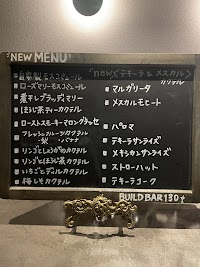 NEW MENU
自家製モスコミュール
ローズマリーモスコミュール
煮干しブラッディマリー
ほうじ茶ティーカクテル
ローストスモーキーマロングラッセ
フレッシュフルーツカクテル
・梨 ・バナナ
りんごとしょうがのカクテル
りんごとほうじ茶カクテル
いちごとデイルカクテル
梅しそカクテル
new!〈テキーラ & メスカル〉
カクテル
マルガリータ
メスカルモヒート
パロマ
テキーラサンライズ
メキシカンサンライズ
ストローハット
テキーラコーク
BUILD BAR 130+